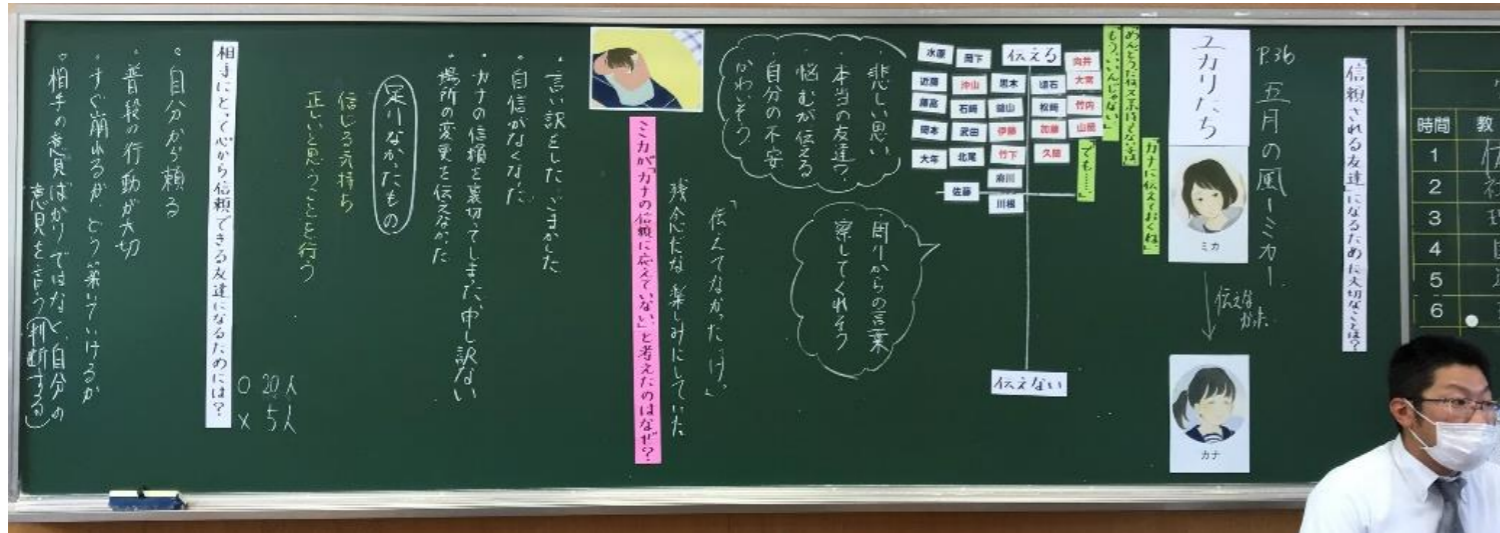 「信頼される友達」になるために大切なことは？
P.36 五月の風ーミカー
ユカリたち
ミカ
伝えな
かった
カナ
カナに伝えておくね
もう、いいんじゃない
でも……
伝える
水原
岡下
向井
近藤
沖山
黒木
大宮
藤高
石崎
松崎
竹内
岡本
武田
伊藤
加藤
山岡
大年
北尾
竹下
久頭
府川
佐藤
川根
伝えない
悲しい思い
本当の友達？
悩むが伝える
自分の不安
かわいそう
周りからの言葉
察してくれそう
「伝えてなかったっけ。」
残念だな 楽しみにしていた
ミカが「カナの信頼に応えていない」と考えたのはなぜ？
・言い訳をした、ごまかした
・自信がなくなった
・カナの信頼を裏切ってしまった、申し訳ない
・場所の変更を伝えなかった
足りなかったもの
信じる気持ち
正しいと思うことを行う
○ 20人
× 5人
相手にとって心から信頼できる友達になるためには？
・自分から頼る
・普段の行動が大切
・すぐ崩れるが、どう築いていけるか
・相手の意見ばかりではなく、自分の
意見を言う(判断する)
時間
教
1
2
3
4
5
6